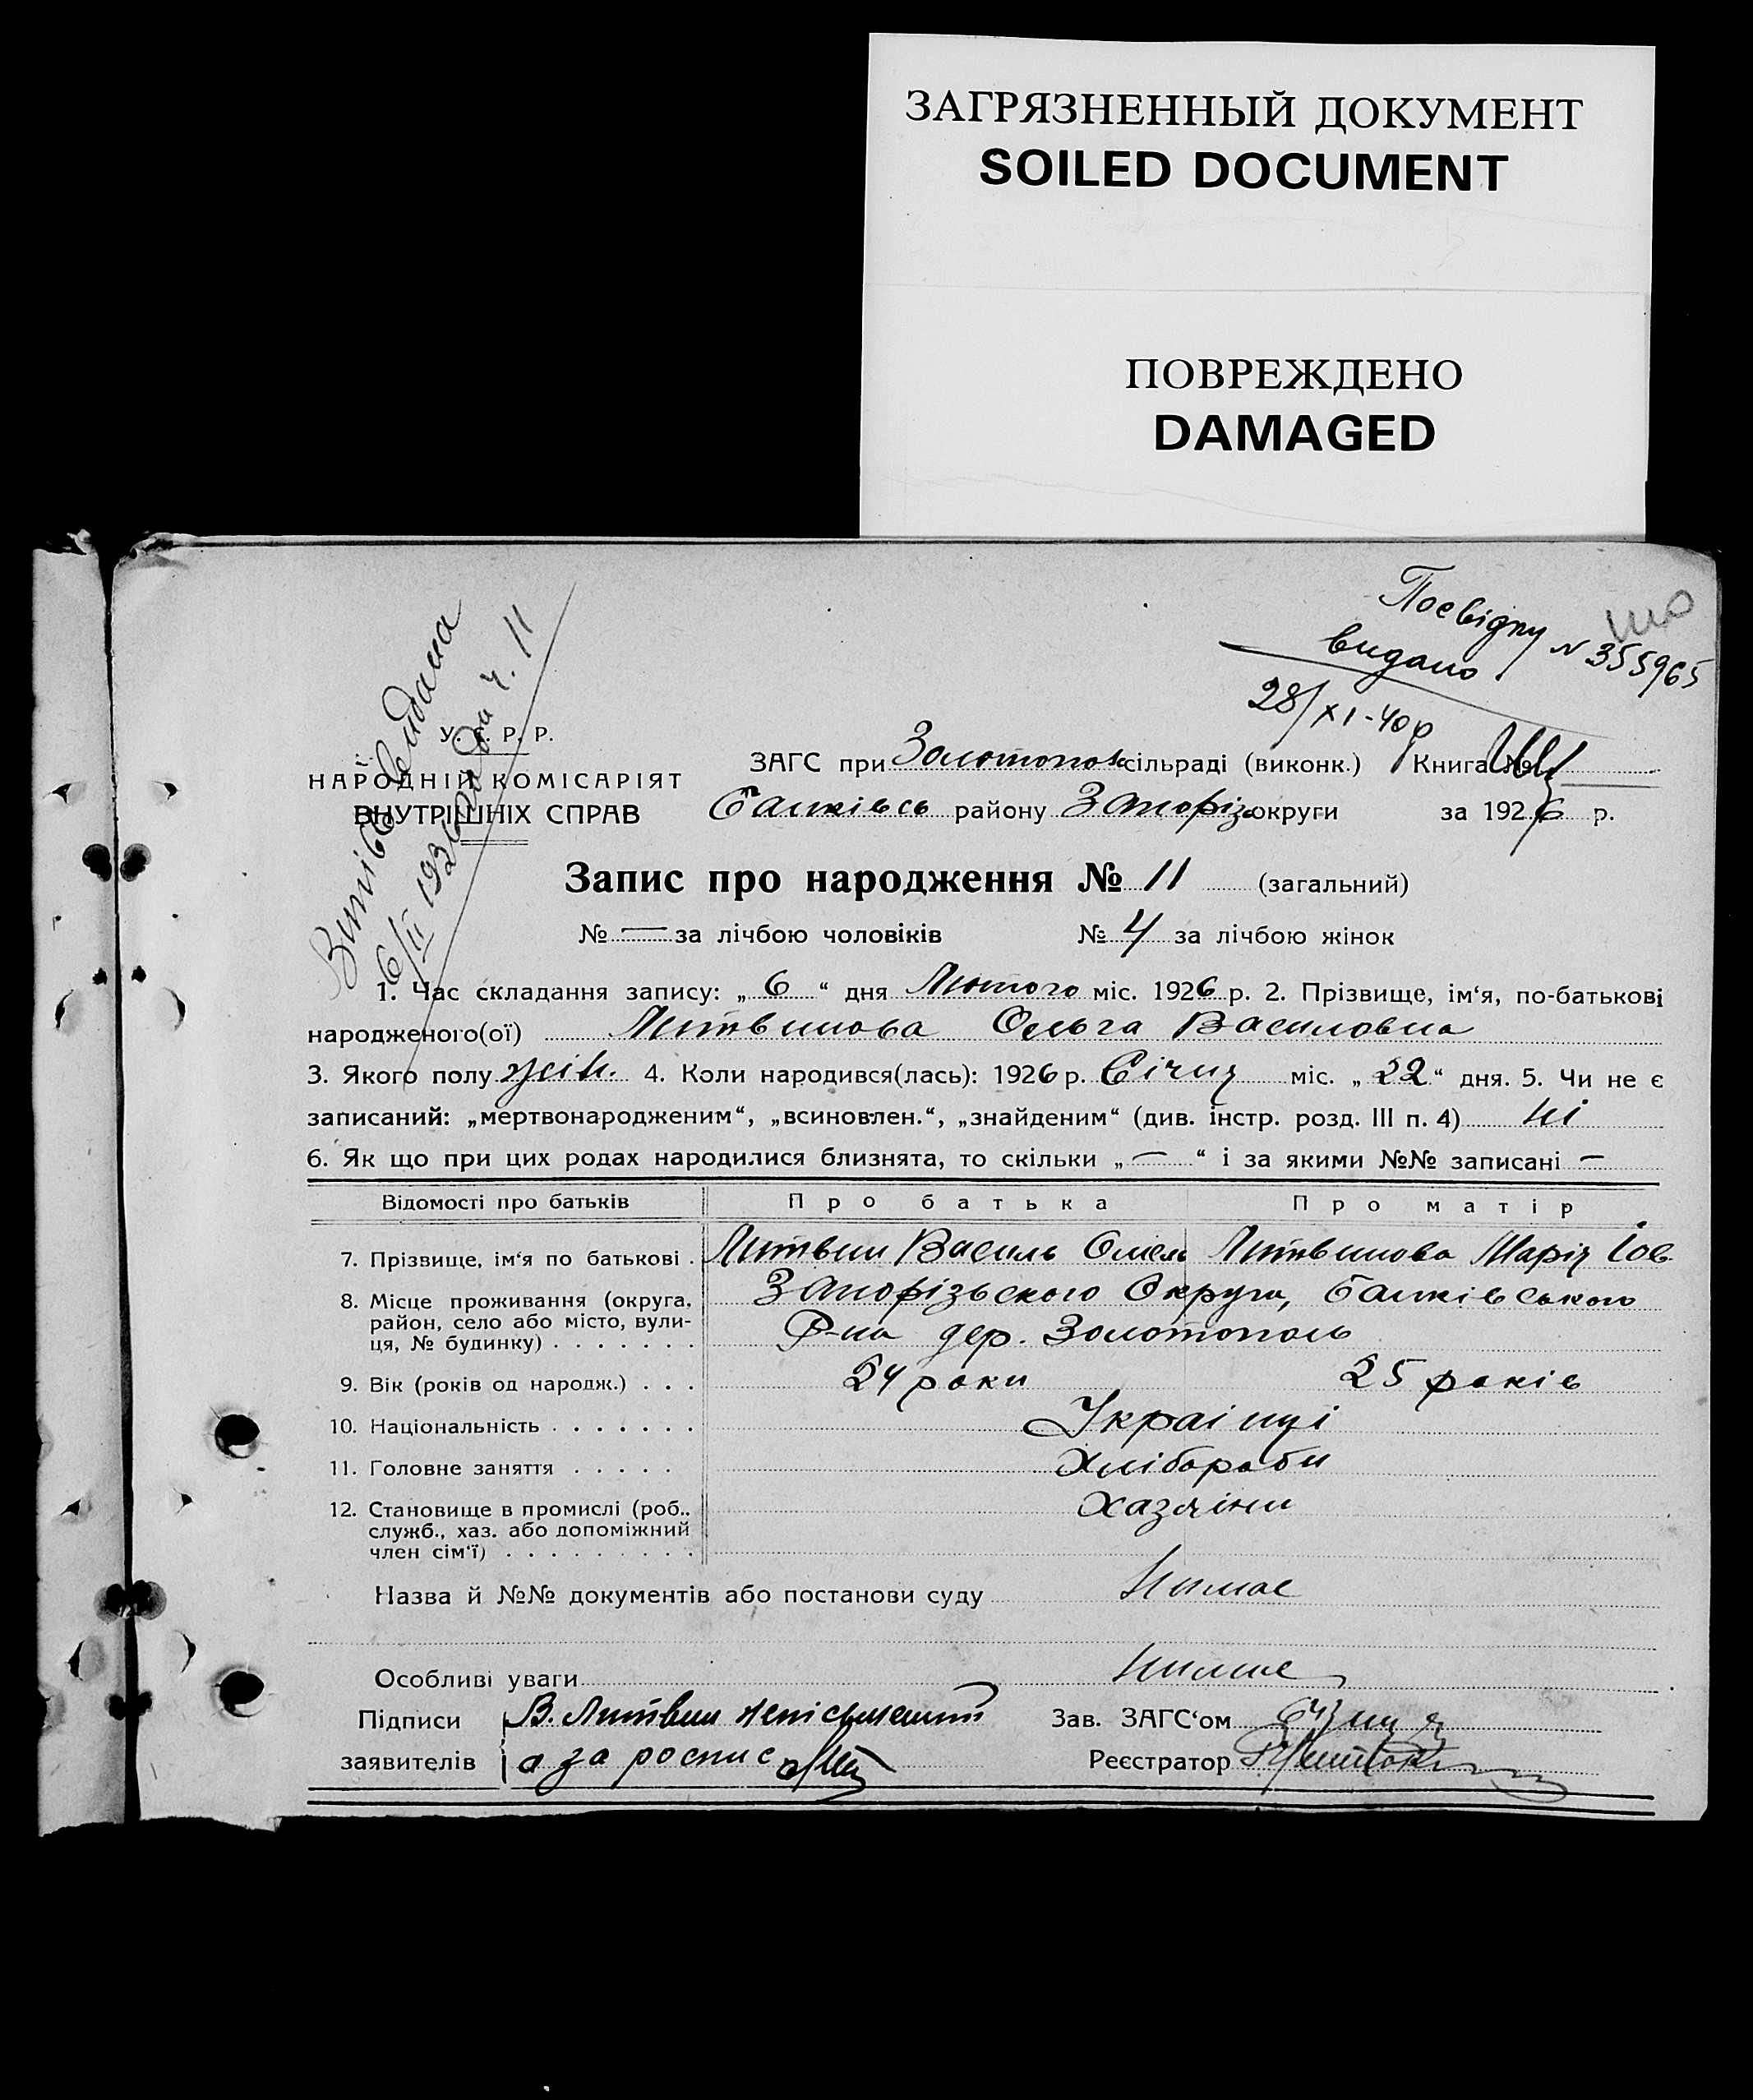 ЗАГРЯЗНЕННЫЙ ДОКУМЕНТ
SOILED DOCUMENT
ПОВРЕЖДЕНО
DAMAGED
Посвідку
видано № 355965
28/XI-40р
Витівка видана
6/II 1926 ч. 11
У. С. Р. Р.
НАРОДНІЙ КОМІСАРІЯТ
ВНУТРІШНІХ СПРАВ
ЗАГС при Золотопол сільраді (виконк.) Книга №
района Запоріз округи за 1926 р.
Запис про народження № 11 (загальний)
№ — за лічбою чоловіків № 4 за лічбою жінок
1. Час складання запису: „ 6 “ дня Лютого міс. 1926 р. 2. Прізвище, ім‘я, по-батькові
народженого(ої) Литвинова Ольга Василовна
3. Якого полу жін. 4. Коли народився(лась): 1926 р. Січня міс. „ 22 “ дня. 5. Чи не є
записаний: „мертвонародженим“, „всиновлен.“, „знайденим“ (див. інстр. розд. III п. 4) ні
6. Як що при цих родах народилися близнята, то скільки „ — “ і за якими №№ записані —
Відомості про батьків Про батька Про матір
7. Прізвище, ім‘я по батькові . Литвин Василь Омель Литвинова Марія Іов
8. Місце проживання (округа, Запорізського Округа,
район, село або місто, вули- Р-на дер. Золотополь
ця, № будинку) . . . . . . .
9. Вік (років од народж.) . . . 24 роки 25 років
10. Національність . . . . . . . Українці
11. Головне заняття . . . . . Хлібороби
12. Становище в промислі (роб., Хазяіни
служб., хаз. або допоміжний
член сім‘ї) . . . . . . . . .
Назва й №№ документів або постанови суду Нимае
Особливі уваги Нимае
Підписи В. Литвин неписьменний Зав. ЗАГС‘ом
заявителів а за роспис Реєстратор